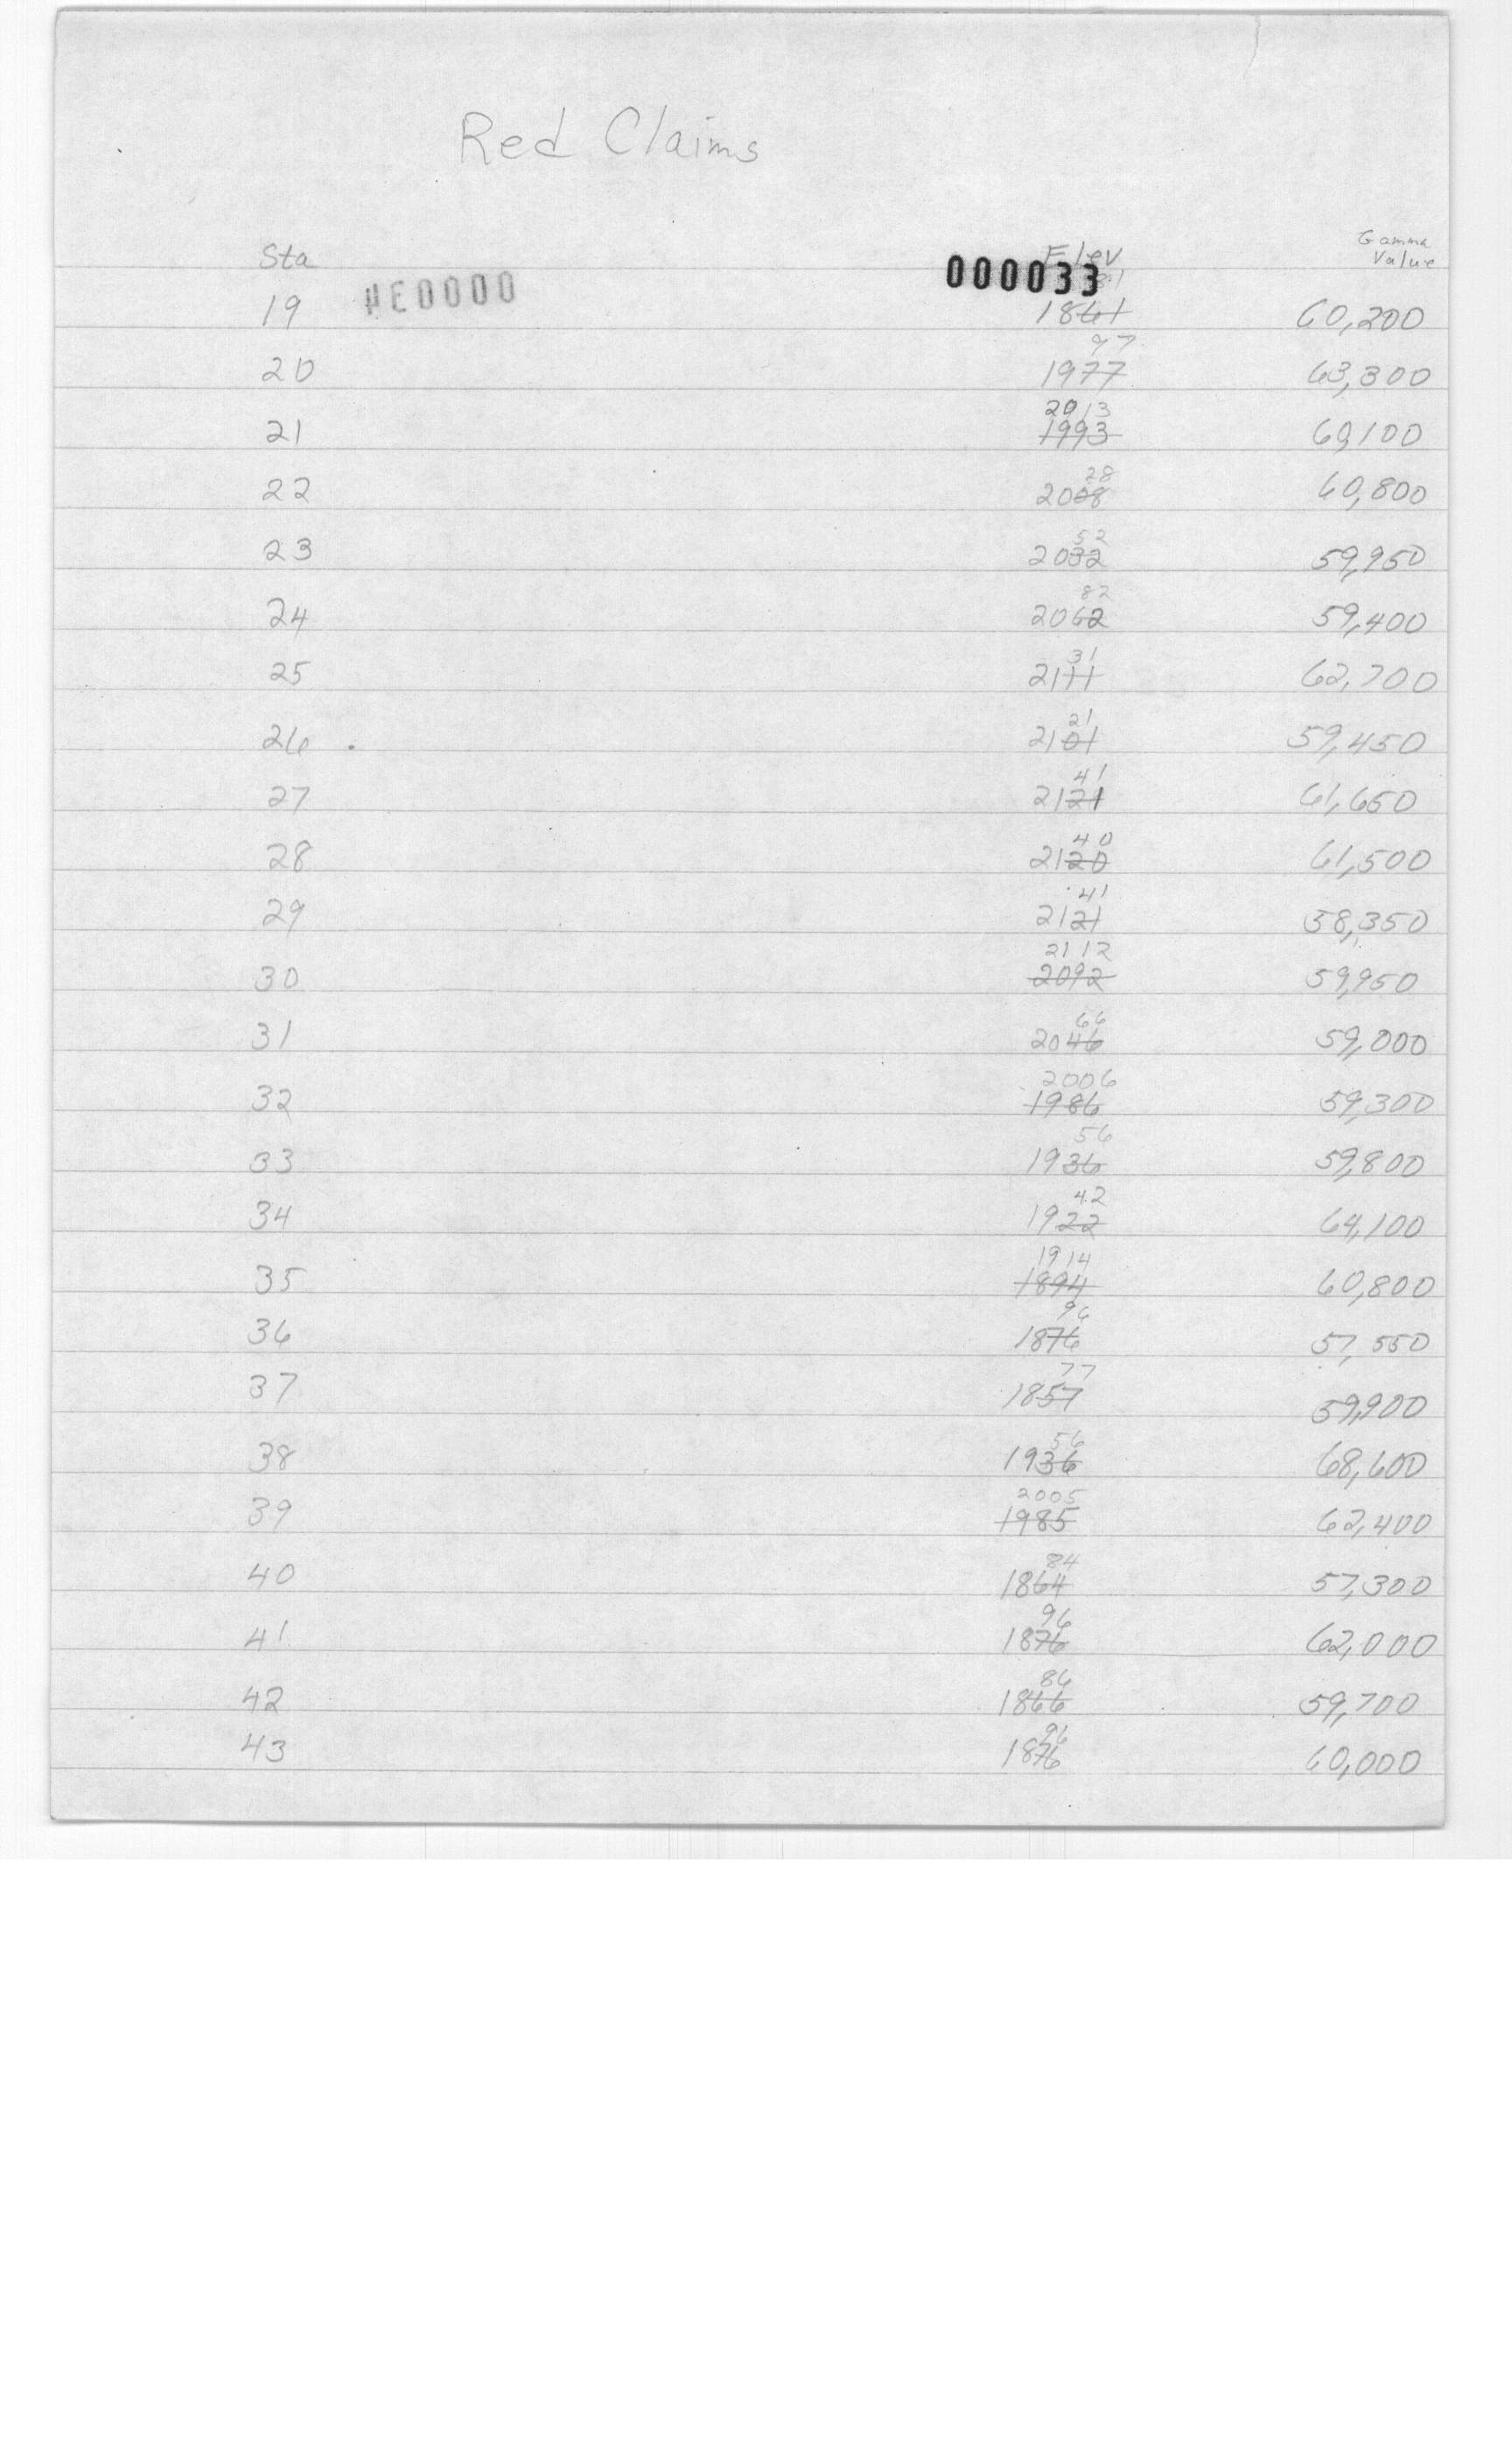 Red Claims
Sta Elev Gamma
Value
000033
ME0000
81
19 1861 60,200
97
20 1977 63,300
2013
21 1993 60,100
28
22 2008 60,800
52
23 2032 59,950
82
24 2062 59,400
31
25 2111 62,700
21
26 2101 59,450
41
27 2121 61,650
40
28 2120 61,500
41
29 2121 58,350
2112
30 2092 59,950
66
31 2046 59,000
2006
32 1986 59,300
56
33 1936 59,800
42
34 1922 64,100
1914
35 1894 60,800
96
36 1876 57,550
77
37 1857 59,900
56
38 1936 68,600
2005
39 1985 62,400
84
40 1864 57,300
96
41 1876 62,000
86
42 1866 59,700
96
43 1876 60,000